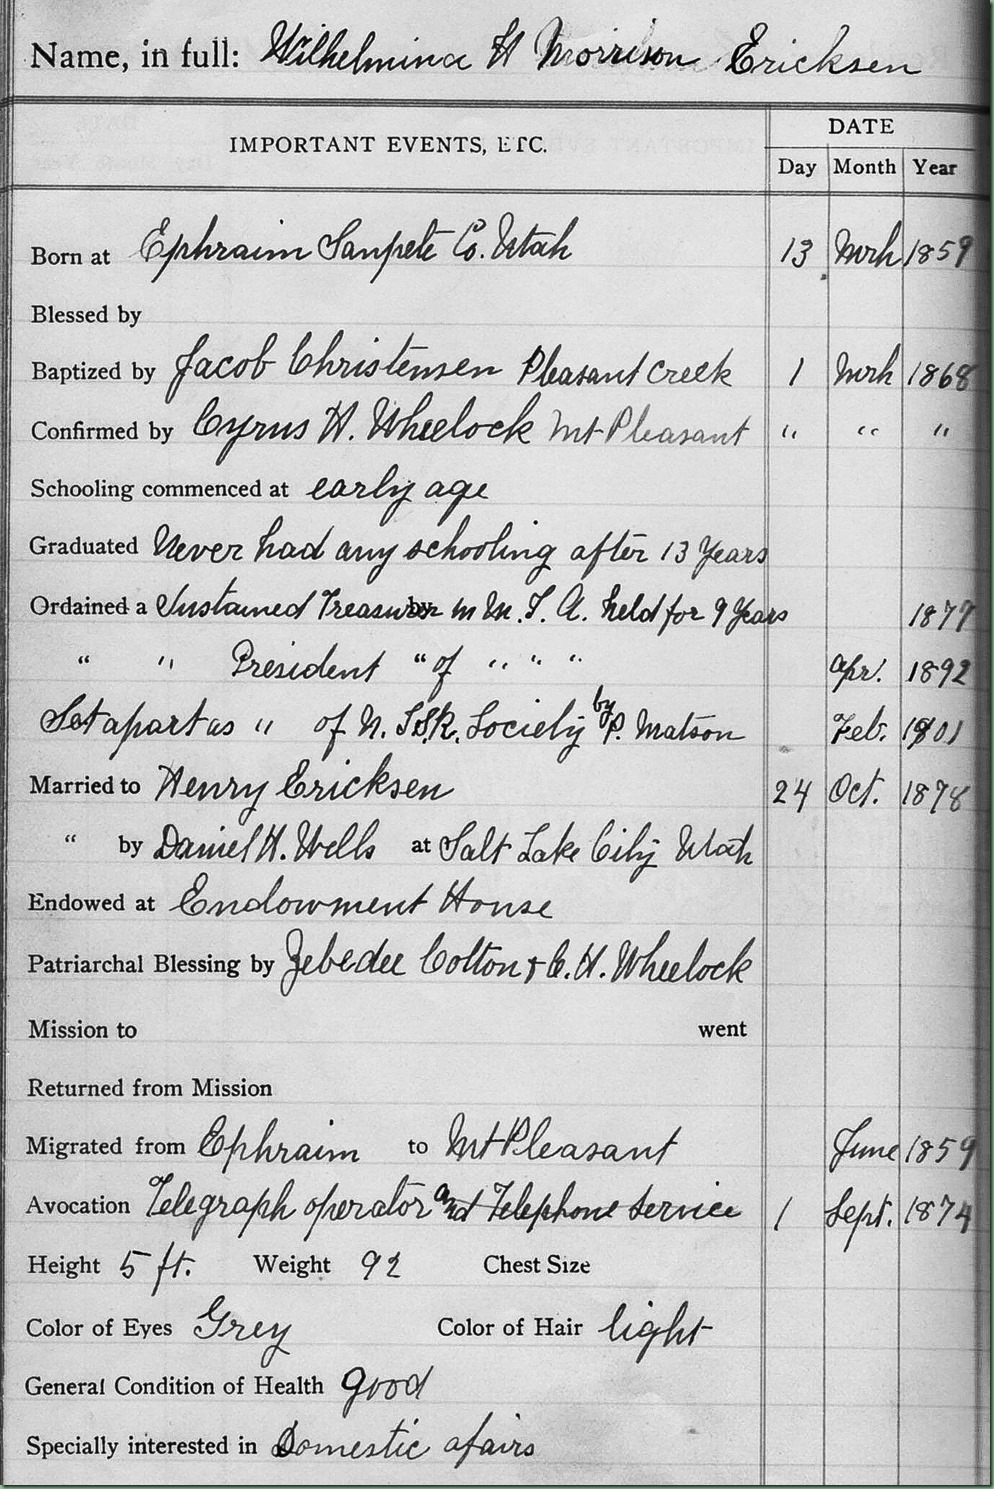 Name, in full: Wilhelmina H Morrison Ericksen
IMPORTANT EVENTS, ETC. DATE
Day Month Year
Born at Ephraim Sanpete Co. Utah 13 Mrh 1859
Blessed by
Baptized by Jacob Christensen Pleasant Creek 1 Mrh 1868
Confirmed by Cyrus H. Wheelock Mt Pleasant " " "
Schooling commenced at early age
Graduated Never had any schooling after 13 Years
Ordained a Sustained Treasurer in M. I. A. held for 9 Years 1877
" " President " of " " " Apr. 1892
Set apart as " of N. S. R. Society by P. Matson Feb. 1901
Married to Henry Ericksen 24 Oct. 1878
" by Daniel H. Wells at Salt Lake City Utah
Endowed at Endowment House
Patriarchal Blessing by Zebedee Colton & C. H. Wheelock
Mission to went
Returned from Mission
Migrated from Ephraim to Mt Pleasant June 1859
Avocation Telegraph operator and Telephone service 1 Sept. 1874
Height 5 ft. Weight 92 Chest Size
Color of Eyes Grey Color of Hair light
General Condition of Health good
Specially interested in Domestic afairs